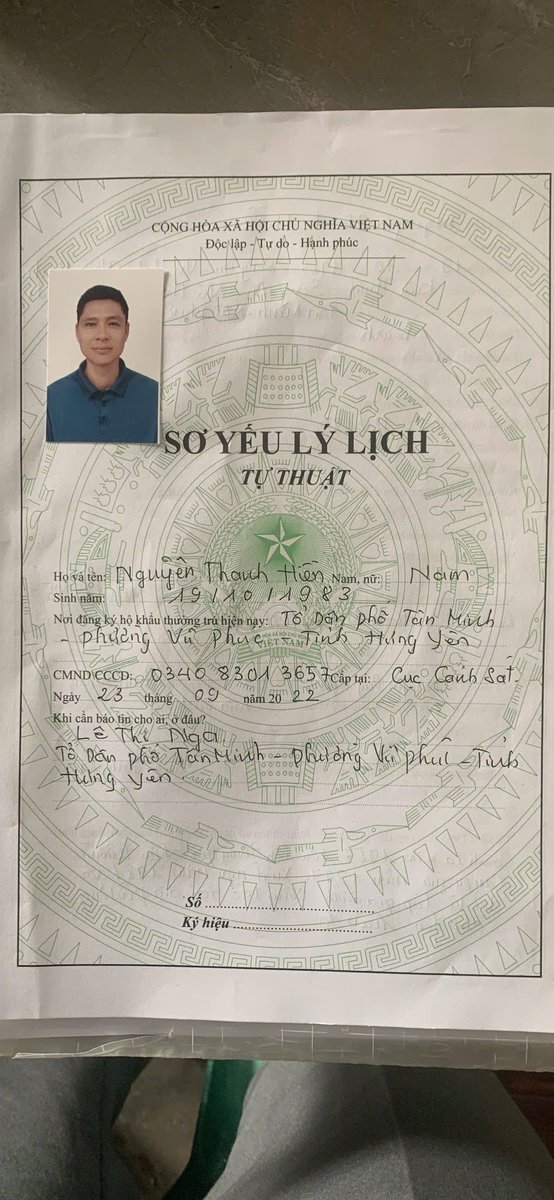 CỘNG HÒA XÃ HỘI CHỦ NGHĨA VIỆT NAM
Độc lập - Tự do - Hạnh phúc
SƠ YẾU LÝ LỊCH
TỰ THUẬT
Họ và tên: Nguyễn Thanh Hiền Nam, nữ: Nam
Sinh năm: 19/10/1983
Nơi đăng ký hộ khẩu thường trú hiện nay: Tổ Dân phố Tân Minh
- phường Vũ Phúc - Tỉnh Hưng Yên
VIỆT NAM
CMND/CCCD: 034083013657 Cấp tại: Cục Cảnh Sát.
Ngày 23 tháng 09 năm 2022
Khi cần báo tin cho ai, ở đâu?
Lê Thị Nga
Tổ Dân phố Tân Minh - phường Vũ phúc - Tỉnh
Hưng Yên.
Số
Ký hiệu